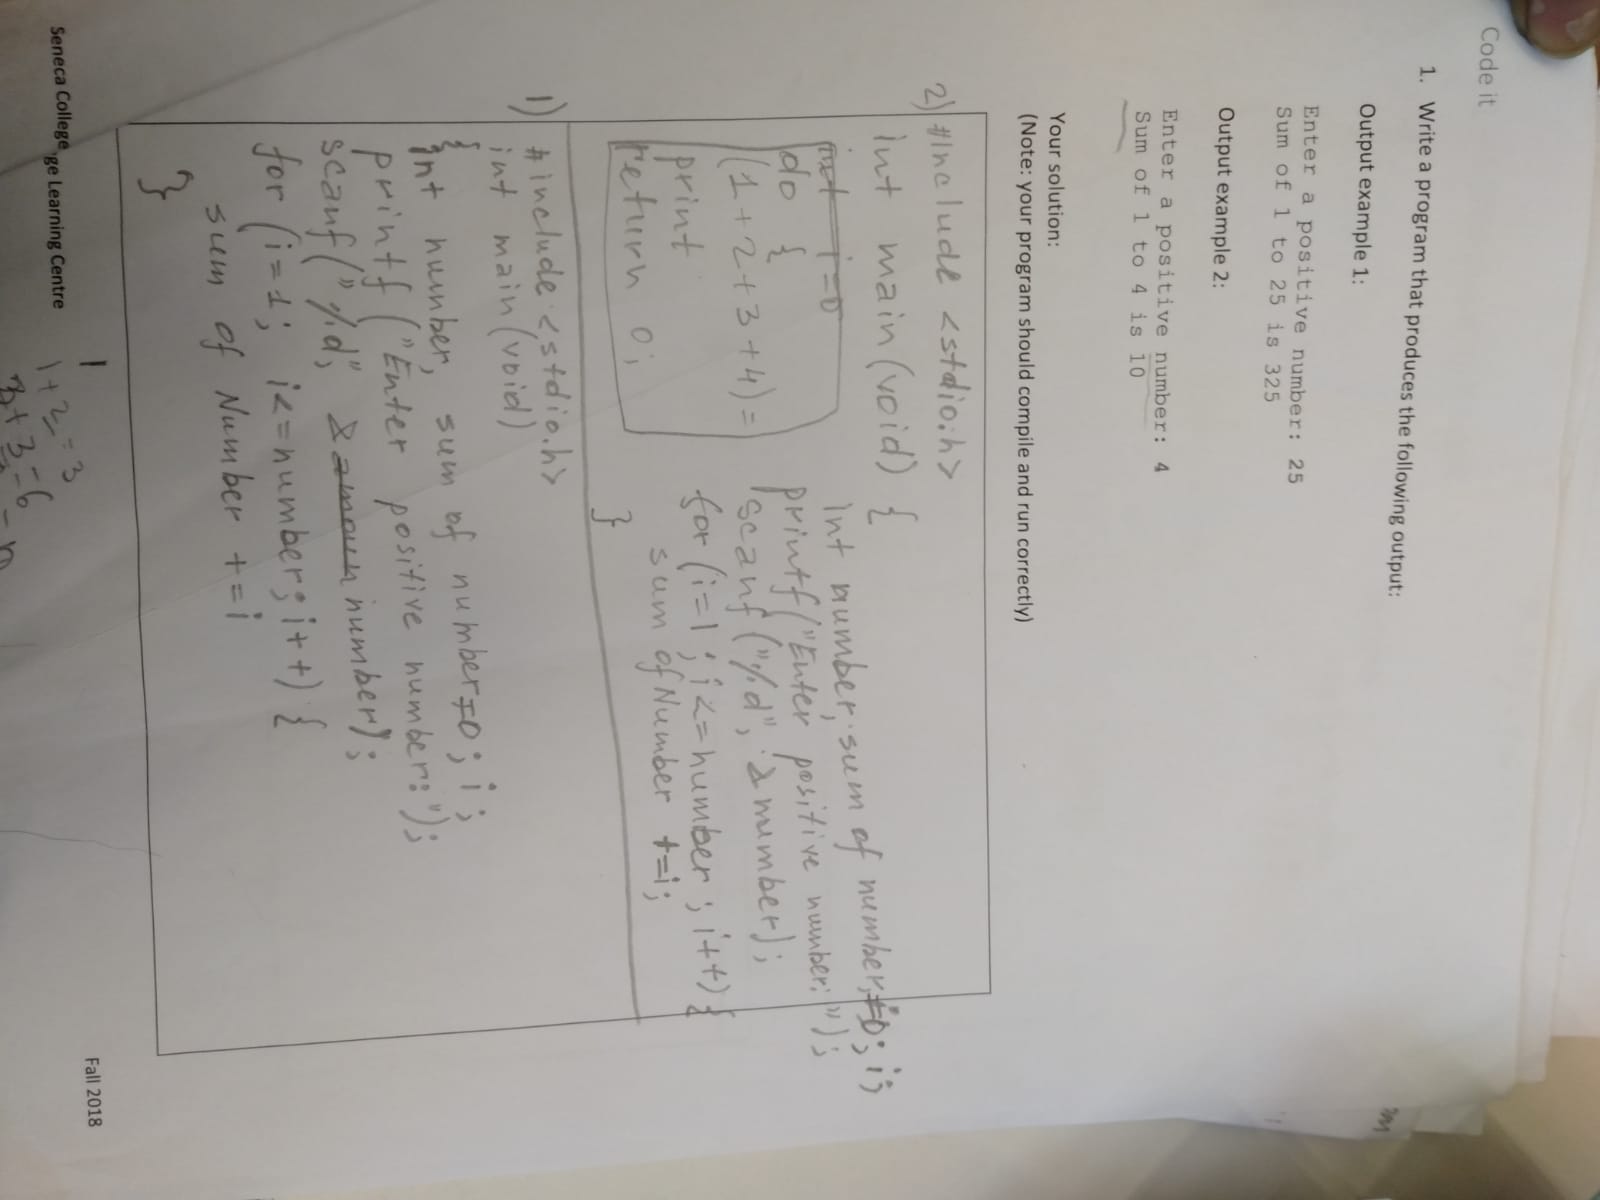 Code it
1. Write a program that produces the following output:
Output example 1:
Enter a positive number: 25
Sum of 1 to 25 is 325
Output example 2:
Enter a positive number: 4
Sum of 1 to 4 is 10
Your solution:
(Note: your program should compile and run correctly)
2) #Include <stdio.h>
int main (void) {
int i=0
do {
(1+2+3+4)=
print
return 0;
int number, sum of number, =0; i;
printf("Enter positive number: ");
scanf ("%d", &number);
for (i=1; i<=number; i++) {
sum of Number +=i;
}
1) #include <stdio.h>
int main (void)
{
int number, sum of number=0; i;
printf ("Enter positive number: ");
scanf("%d", & amoun number);
for (i=1; i<=number; i++) {
sum of Number +=i
}
Fall 2018
Seneca College
ge Learning Centre
1
1+2=3
3+3=6